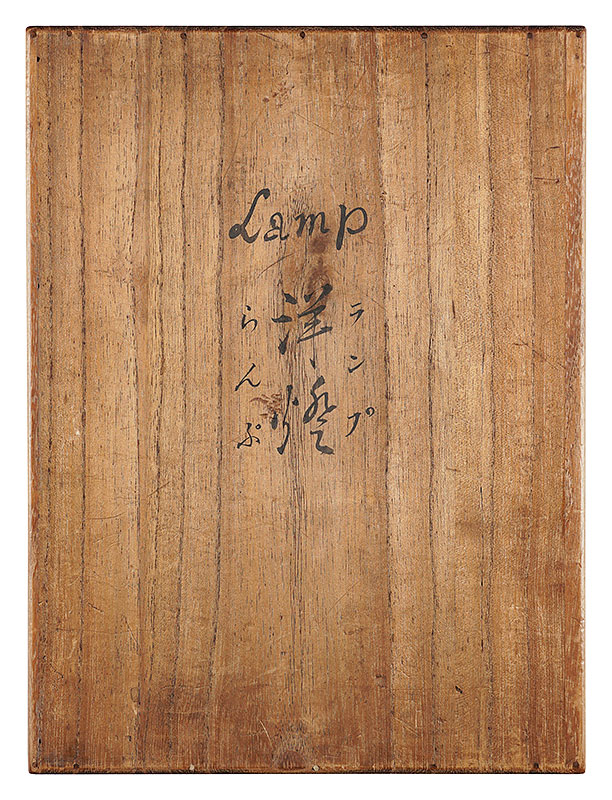 Lamp
ランプ
洋燈
らんぷ